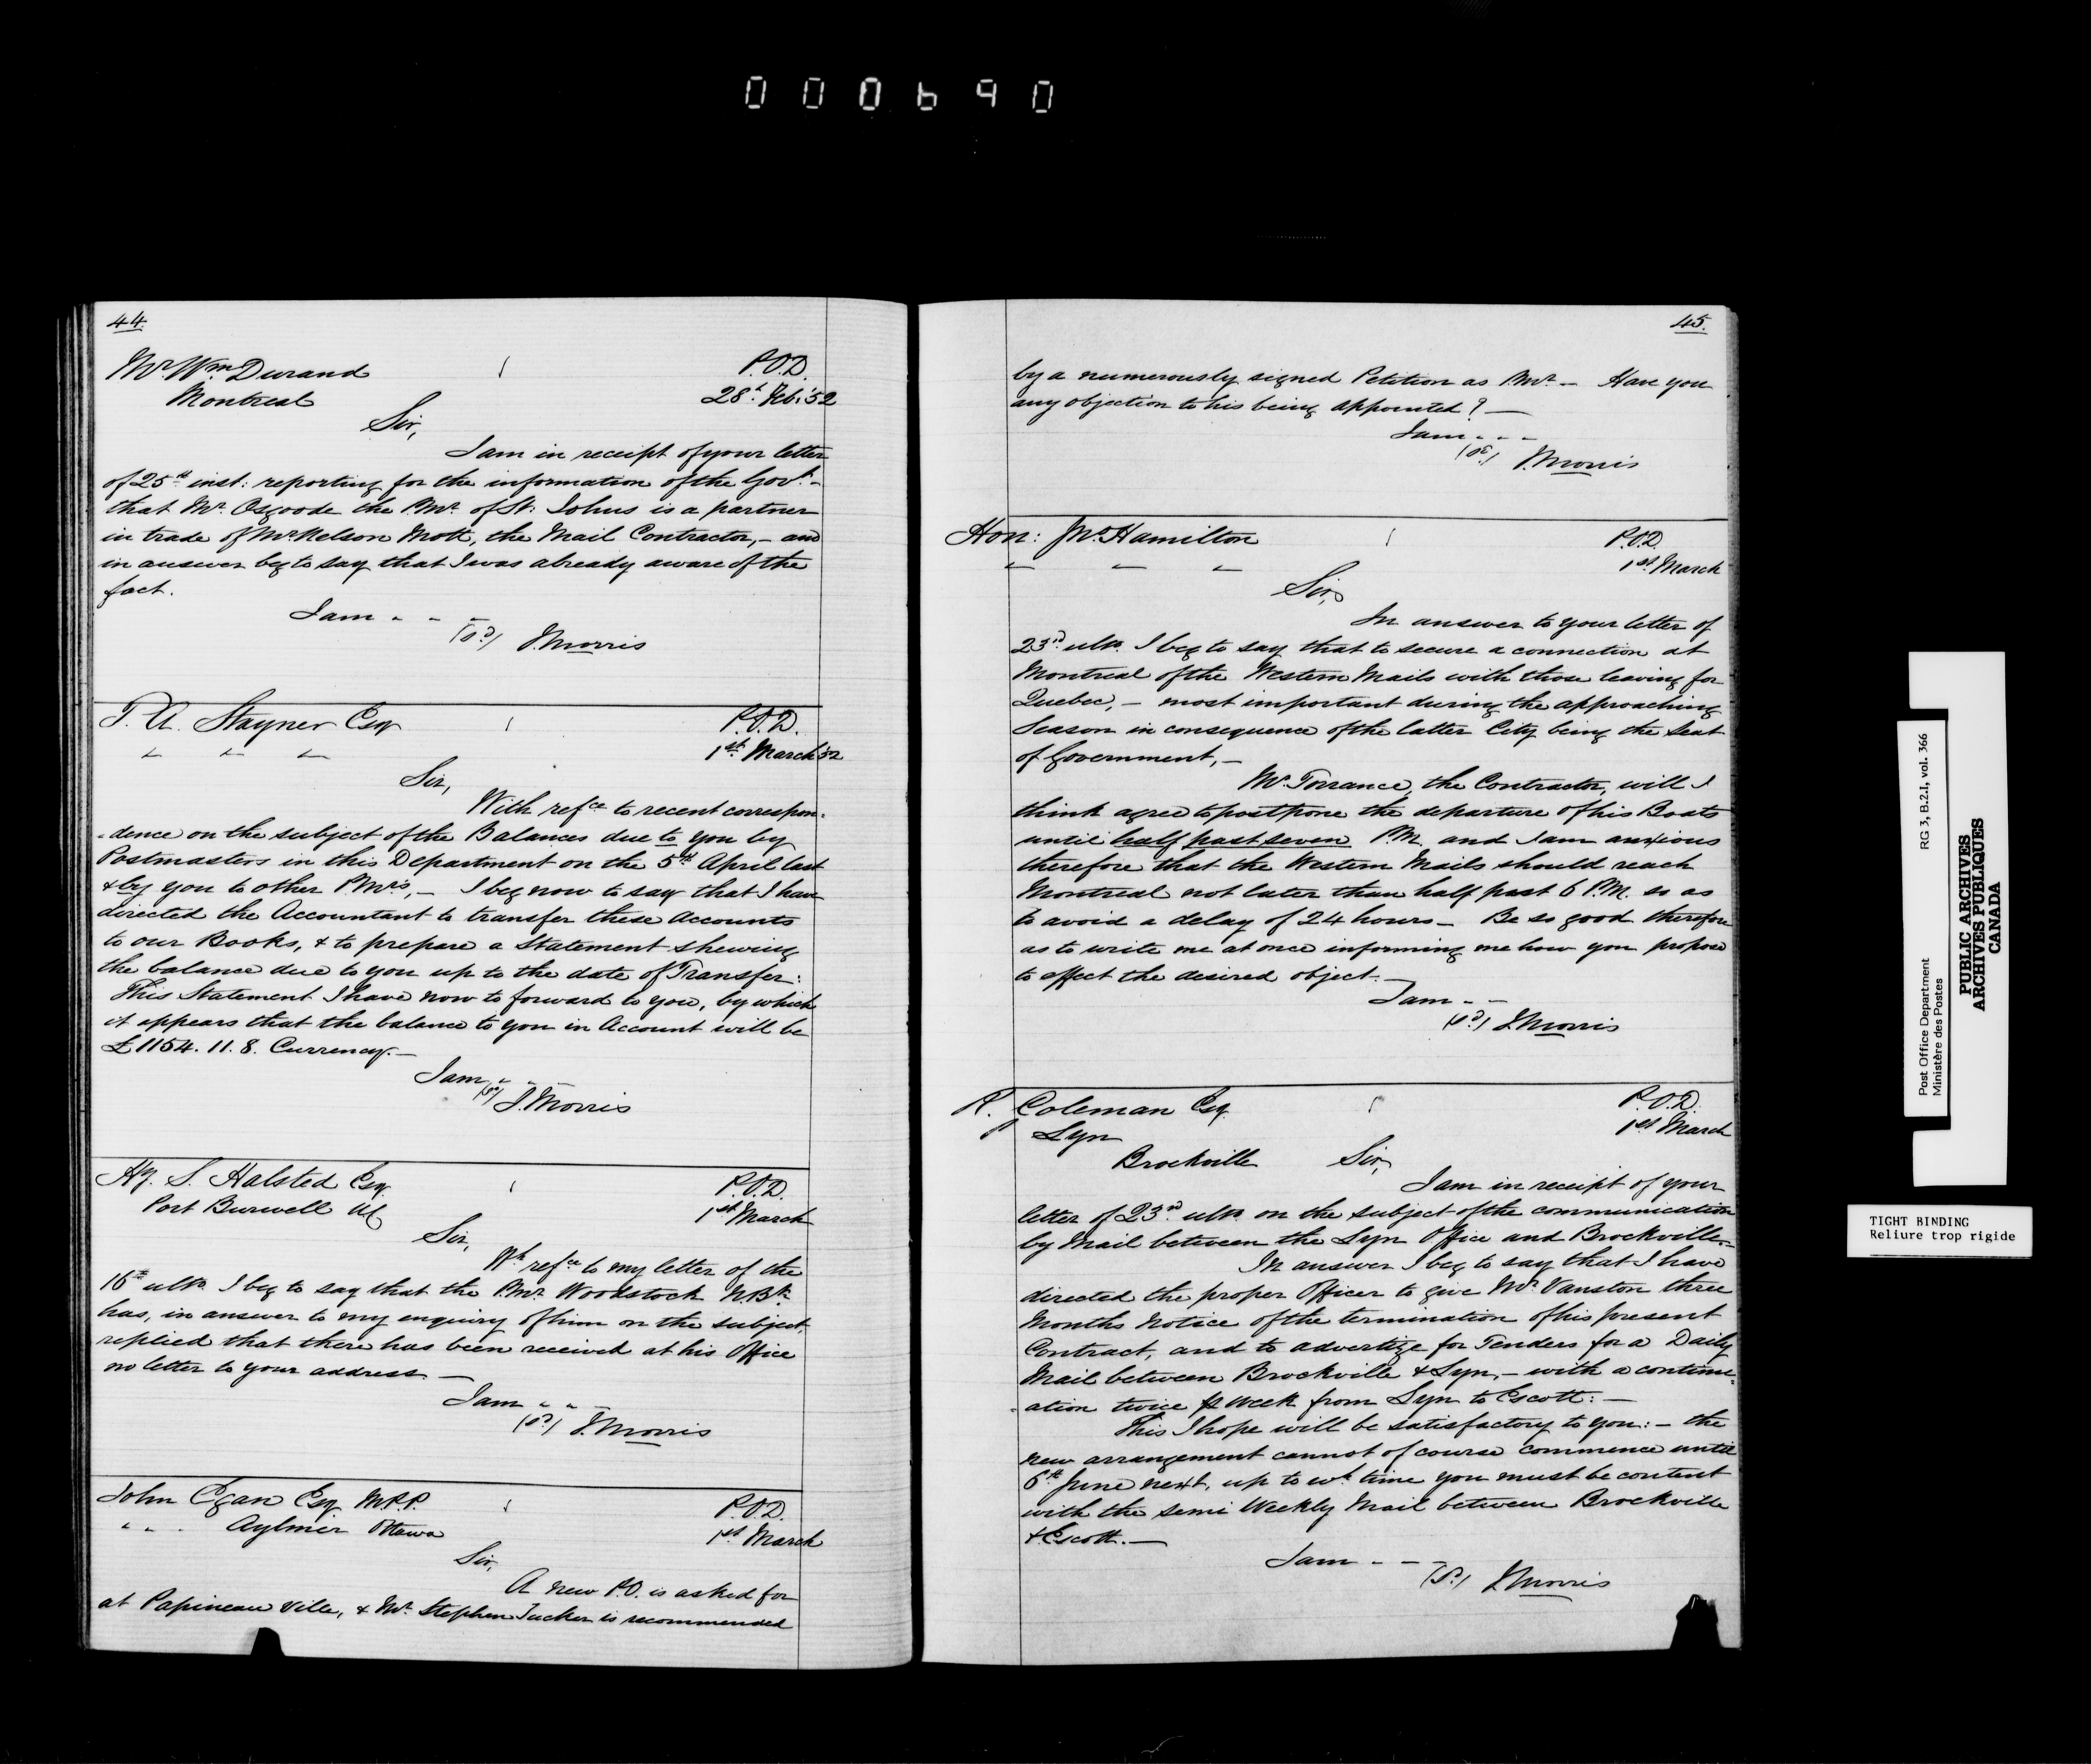 000690
44.
Mr. Wm Durand
Montreal
P.O.D.
28th Feb: '52
Sir,
I am in receipt of your letter
of 25th inst: reporting for the information of the Govt. -
that Mr. Osgoode the P.Mr. of St. Johns is a partner
in trade of Mr Nelson Mott, the Mail Contractor, - and
in answer beg to say that I was already aware of the
fact.
I am - - -
(sd) J. Morris
T. A. Stayner Esq
P.O.D.
1st March '52
Sir,
With refce to recent correspon-
-dence on the subject of the Balances due to you by
Postmasters in this Department on the 5th April last
& by you to other P.Mrs, - I beg now to say that I have
directed the Accountant to transfer these Accounts
to our Books, & to prepare a Statement shewing
the balance due to you up to the date of Transfer:
This Statement I have now to forward to you, by which
it appears that the balance to you in Account will be
£1154. 11. 8. Currency. -
I am - - -
(sd) J. Morris
Hy. S. Halsted Esq.
Port Burwell
P.O.D.
1st March
Sir,
Wh refce to my letter of the
16th ulto. I beg to say that the P.Mr. Woodstock N.Bk.
has, in answer to my enquiry of him on the subject,
replied that there has been received at his Office
no letter to your address. -
I am - - -
(sd) J. Morris
John Egan Esq. M.P.P.
" " . Aylmer Ottawa
P.O.D.
1st March
Sir,
A new P.O. is asked for
at Papineau Ville, & Mr. Stephen Tucker is recommended
45.
by a numerously signed Petition as P.Mr. - Have you
any objection to his being appointed? -
I am - - -
(sd) J. Morris
Hon: Jno. Hamilton
P.O.D.
1st March
Sir,
In answer to your letter of
23rd ulto. I beg to say that to secure a connection at
Montreal of the Western Mails with those leaving for
Quebec, - most important during the approaching
Season in consequence of the latter City being the Seat
of Government, -
Mr. Torrance, the Contractor, will I
think agree to postpone the departure of his Boats
until half past seven P.M. and I am anxious
therefore that the Western Mails should reach
Montreal not later than half past 6 P.M. so as
to avoid a delay of 24 hours - Be so good therefore
as to write me at once informing me how you propose
to effect the desired object. -
I am - -
(sd) J. Morris
R. Coleman Esq.
Lyn
Brockville
P.O.D.
1st March
Sir,
I am in receipt of your
letter of 23rd ulto. on the subject of the communication
by Mail between the Lyn Office and Brockville. -
In answer I beg to say that I have
directed the proper Officer to give Mr. Vanston three
Months Notice of the termination of his present
Contract, and to advertize for Tenders for a Daily
Mail between Brockville & Lyn, - with a continu-
-ation twice pr week from Lyn to Escott: -
This I hope will be satisfactory to you: - the
new arrangement cannot of course commence until
6th June next, up to wh time you must be content
with the semi Weekly Mail between Brockville
& Escott. -
I am - - -
(sd) J. Morris
Post Office Department
Ministère des Postes
RG 3, B.2.I, vol. 366
PUBLIC ARCHIVES
ARCHIVES PUBLIQUES
CANADA
TIGHT BINDING
Reliure trop rigide